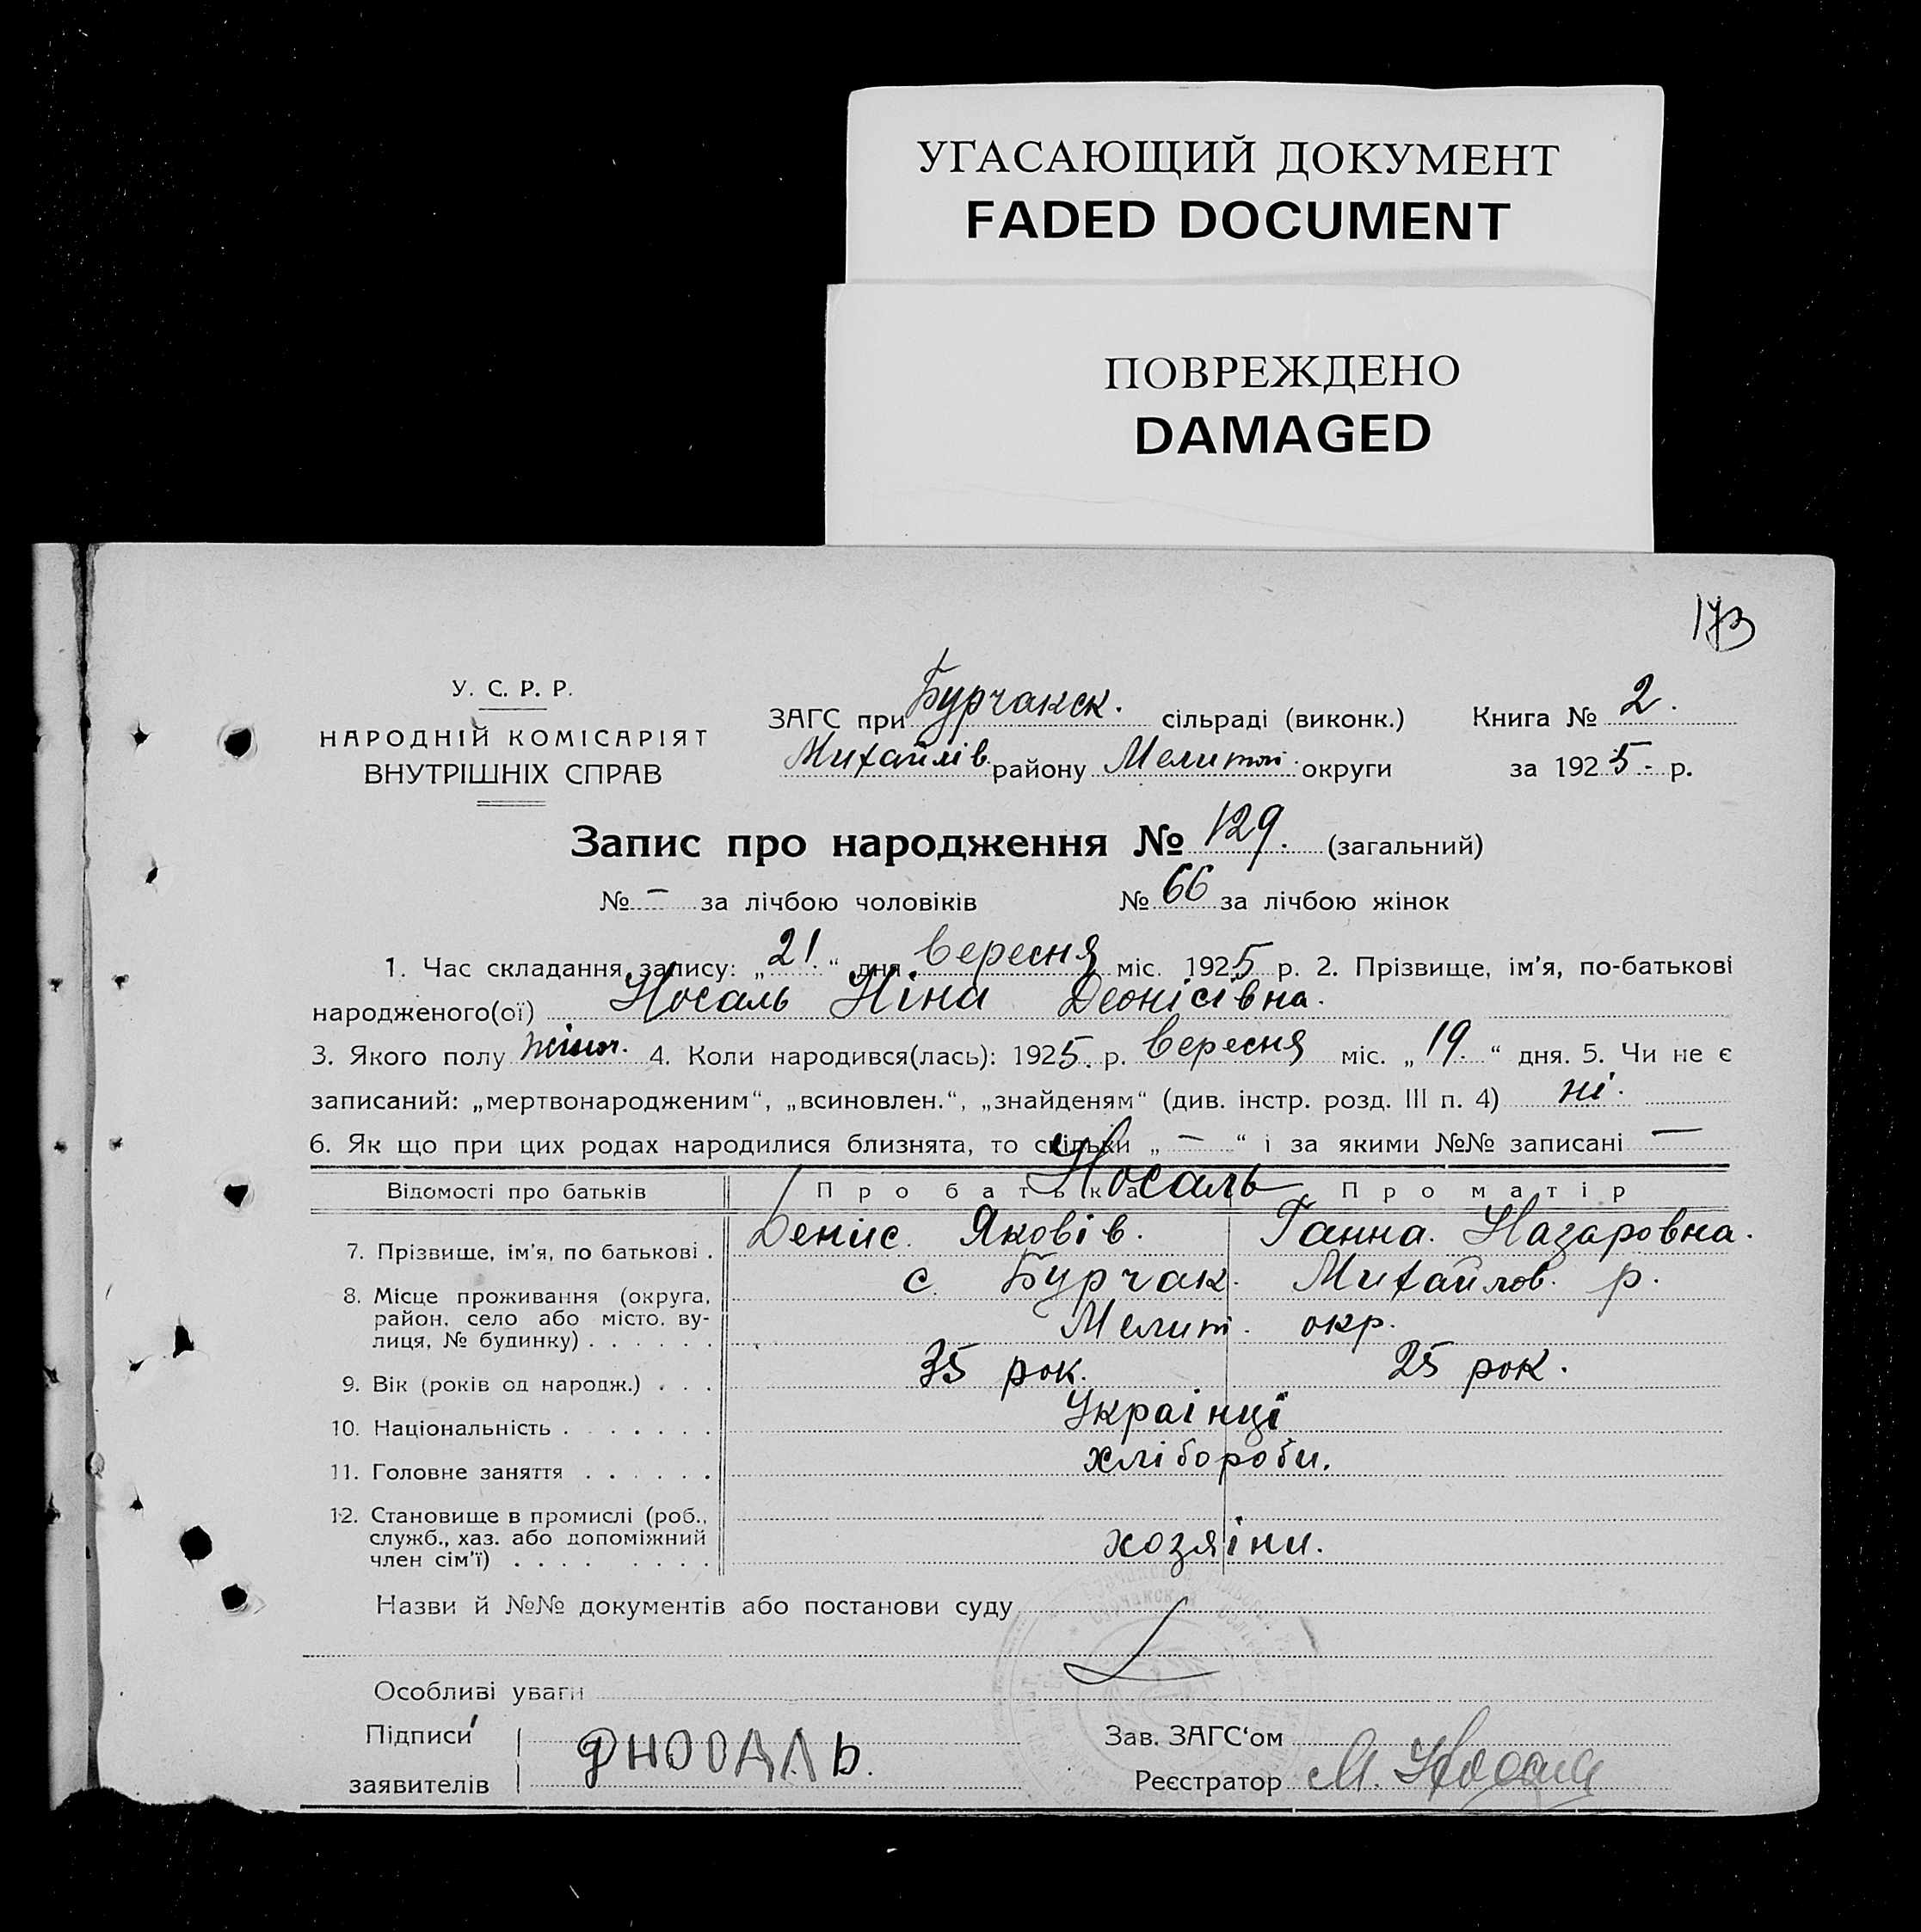 УГАСАЮЩИЙ ДОКУМЕНТ
FADED DOCUMENT
ПОВРЕЖДЕНО
DAMAGED
173
У. С. Р. Р.
НАРОДНІЙ КОМІСАРІЯТ
ВНУТРІШНІХ СПРАВ
ЗАГС при Бурчакск. сільраді (виконк.) Книга № 2.
Михайлів. району Мелитоп. округи за 1925 р.
Запис про народження № 129. (загальний)
№ – за лічбою чоловіків № 66 за лічбою жінок
1. Час складання запису: „21.“ дня вересня міс. 1925 р. 2. Прізвище, ім'я, по-батькові
народженого(ої) Носаль Ніна Деонісівна.
3. Якого полу жіноч. 4. Коли народився(лась): 1925. р. вересня міс. „19.“ дня. 5. Чи не є
записаний: „мертвонародженим“, „всиновлен.“, „знайденям“ (див. інстр. розд. III п. 4) ні.
6. Як що при цих родах народилися близнята, то скільки „–“ і за якими №№ записані —
Відомості про батьків Про батька Про матір
Носаль
7. Прізвище, ім'я, по батькові . Денис. Яковів. Ганна. Назаровна.
8. Місце проживання (округа, с. Бурчак. Михайлов. р.
район, село або місто, ву-
лиця, № будинку) . . . . . . Мелит. окр.
9. Вік (років од народж.) . . . 35 рок. 25 рок.
10. Національність . . . . . . . Украінці
11. Головне заняття . . . . . . хлібороби.
12. Становище в промислі (роб.,
служб., хаз. або допоміжний
член сім'ї) . . . . . . . . . хозяіни.
Назви й №№ документів або постанови суду
Особливі уваги
Підписи Зав. ЗАГС'ом
ДНООАЛЬ.
заявителів Реєстратор М. Носаль